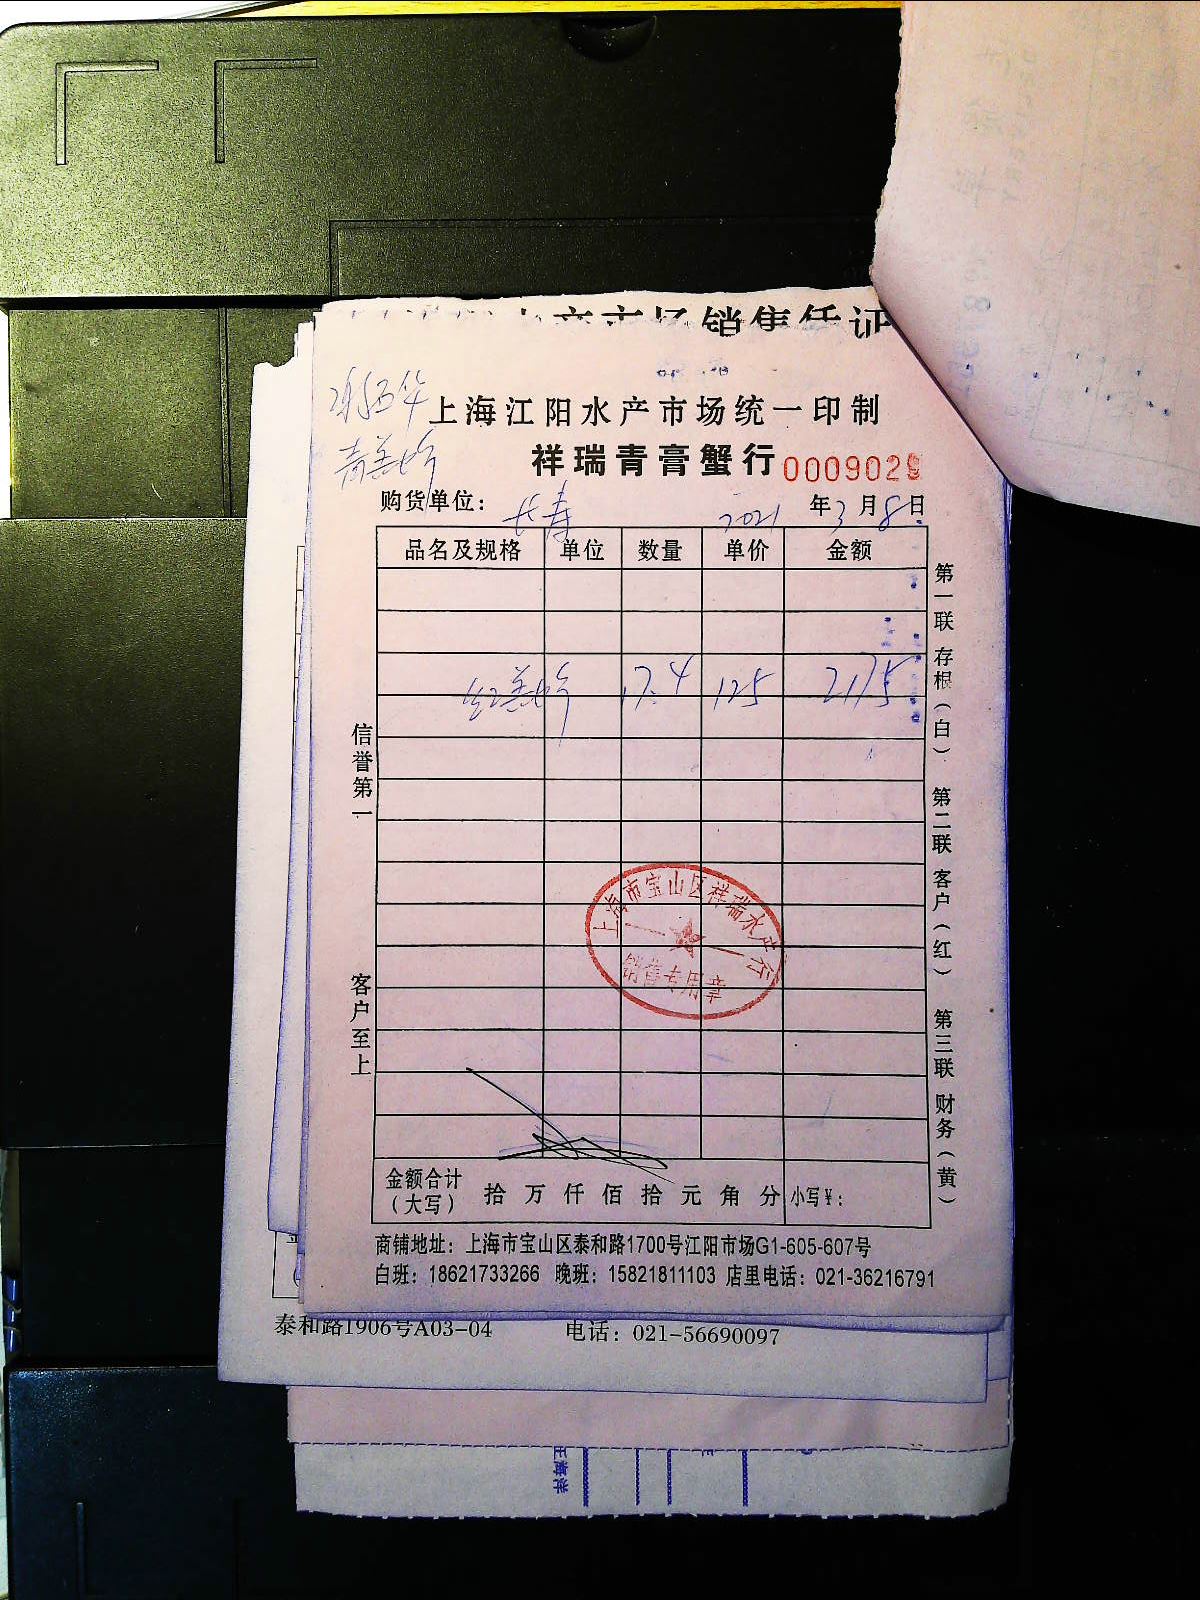 销售凭证
上海江阳水产市场统一印制
祥瑞青膏蟹行 0009029
购货单位：长春 2021年3月8日
品名及规格 单位 数量 单价 金额
17.4 125 2175
信誉第一
客户至上
第一联 存根（白） 第二联 客户（红） 第三联 财务（黄）
上海市宝山区祥瑞水产行
销售专用章
金额合计（大写） 拾 万 仟 佰 拾 元 角 分 小写￥：
商铺地址：上海市宝山区泰和路1700号江阳市场G1-605-607号
白班：18621733266 晚班：15821811103 店里电话：021-36216791
泰和路1906号A03-04 电话：021-56690097
王海洋